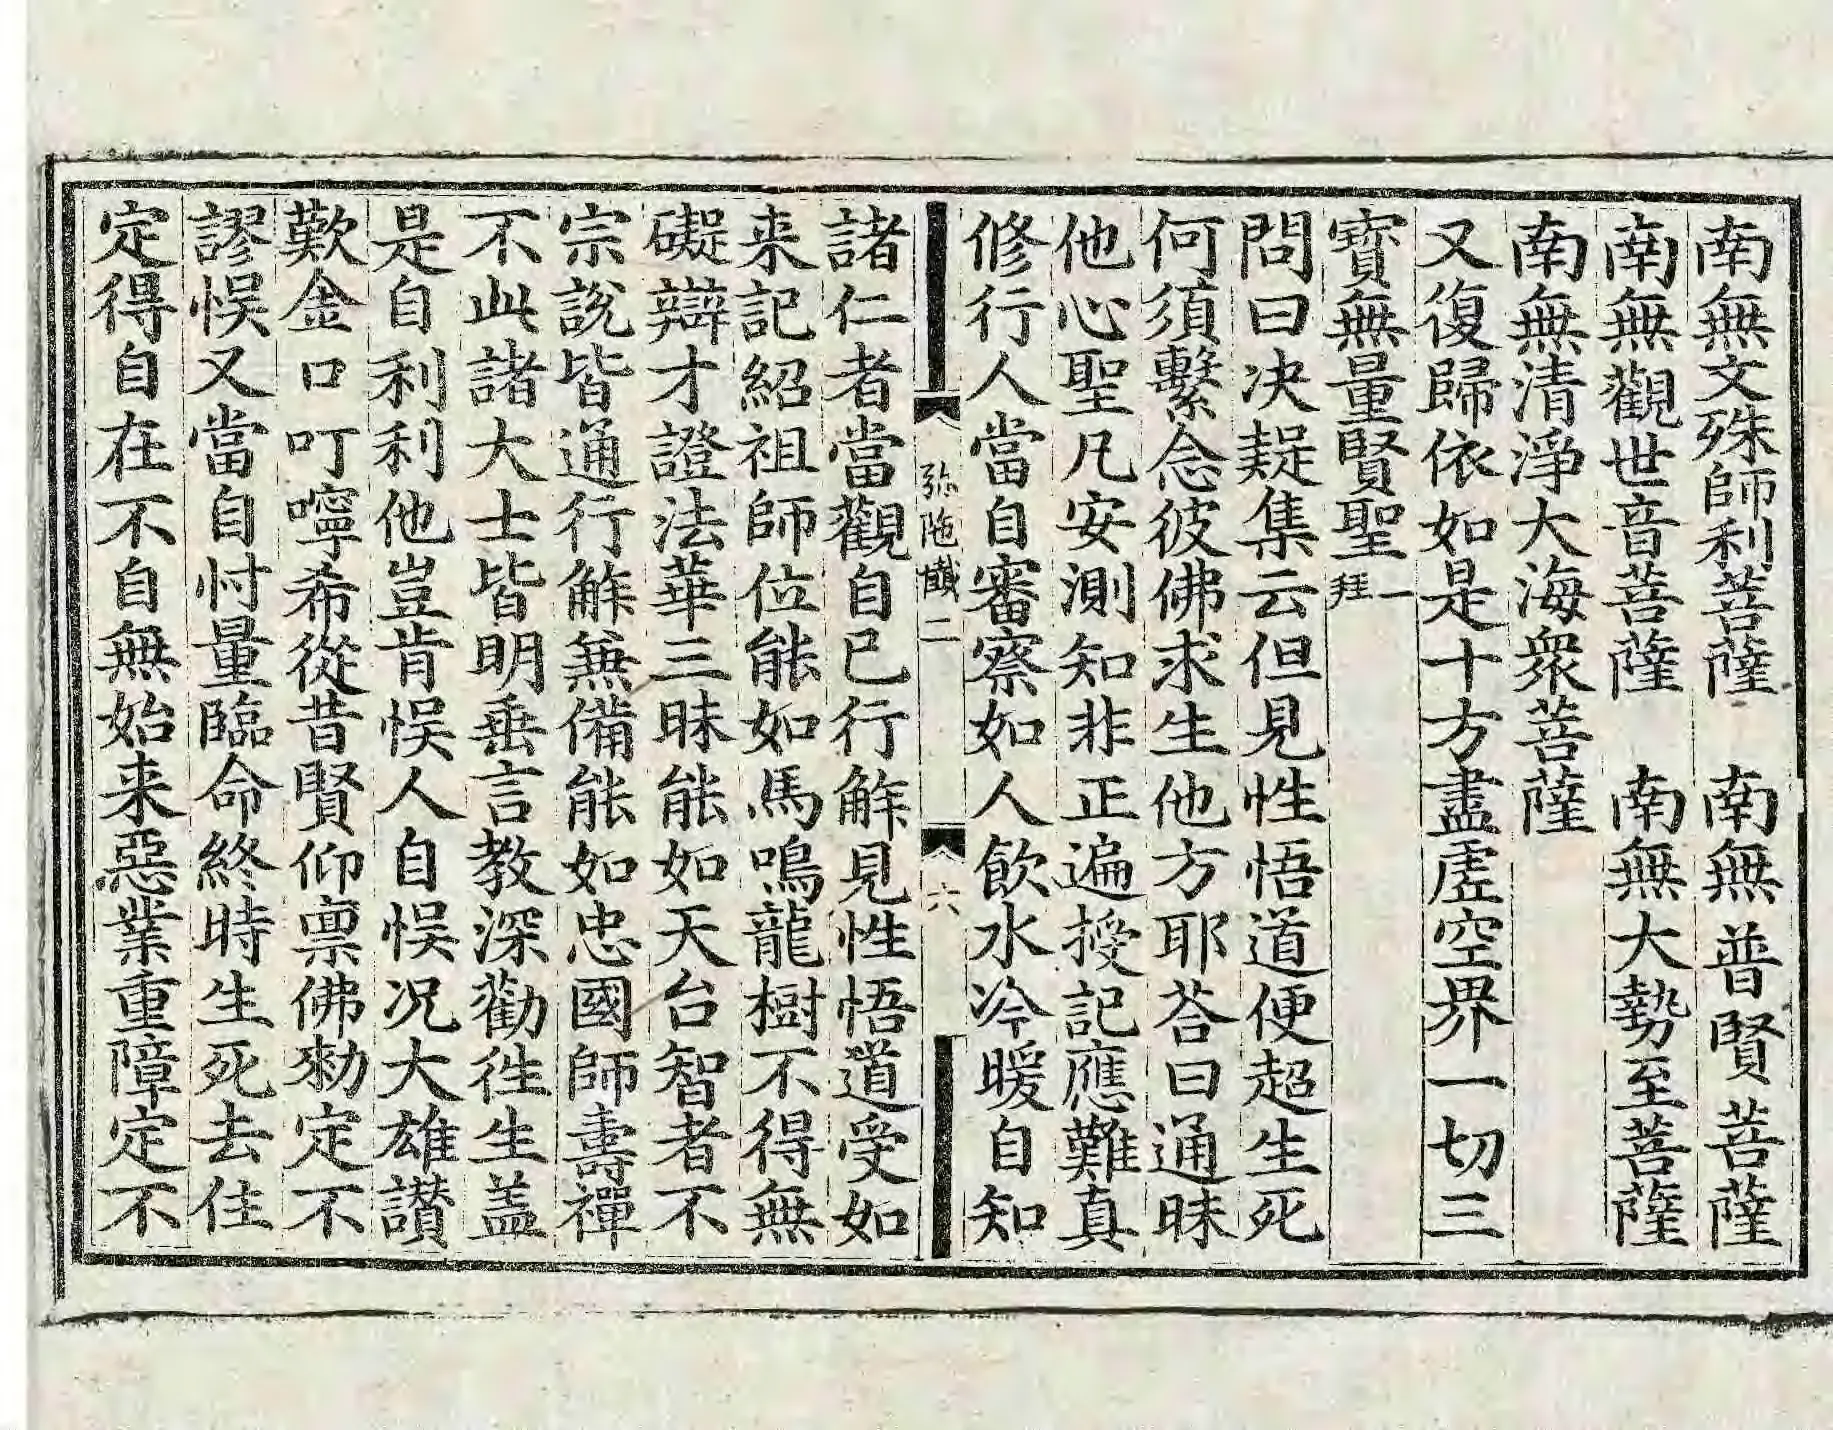 南無文殊師利菩薩　南無普賢菩薩
南無觀世音菩薩　南無大勢至菩薩
南無清淨大海衆菩薩
又復歸依如是十方盡虛空界一切三
寶無量賢聖一拜
問曰决疑集云但見性悟道便超生死
何須繫念彼佛求生他方耶荅曰通昧
他心聖凡安測知非正遍授記應難真
修行人當自審察如人飲水冷暖自知
弥陁懺二　六
諸仁者當觀自己行解見性悟道受如
来記紹祖師位能如馬鳴龍樹不得無
礙辯才證法華三昧能如天台智者不
宗說皆通行解兼備能如忠國師壽禪
不此諸大士皆明垂言教深勸徃生盖
是自利利他豈肯悞人自悞况大雄讃
歎金口叮嚀希從昔賢仰禀佛勑定不
謬悞又當自忖量臨命終時生死去住
定得自在不自無始来惡業重障定不